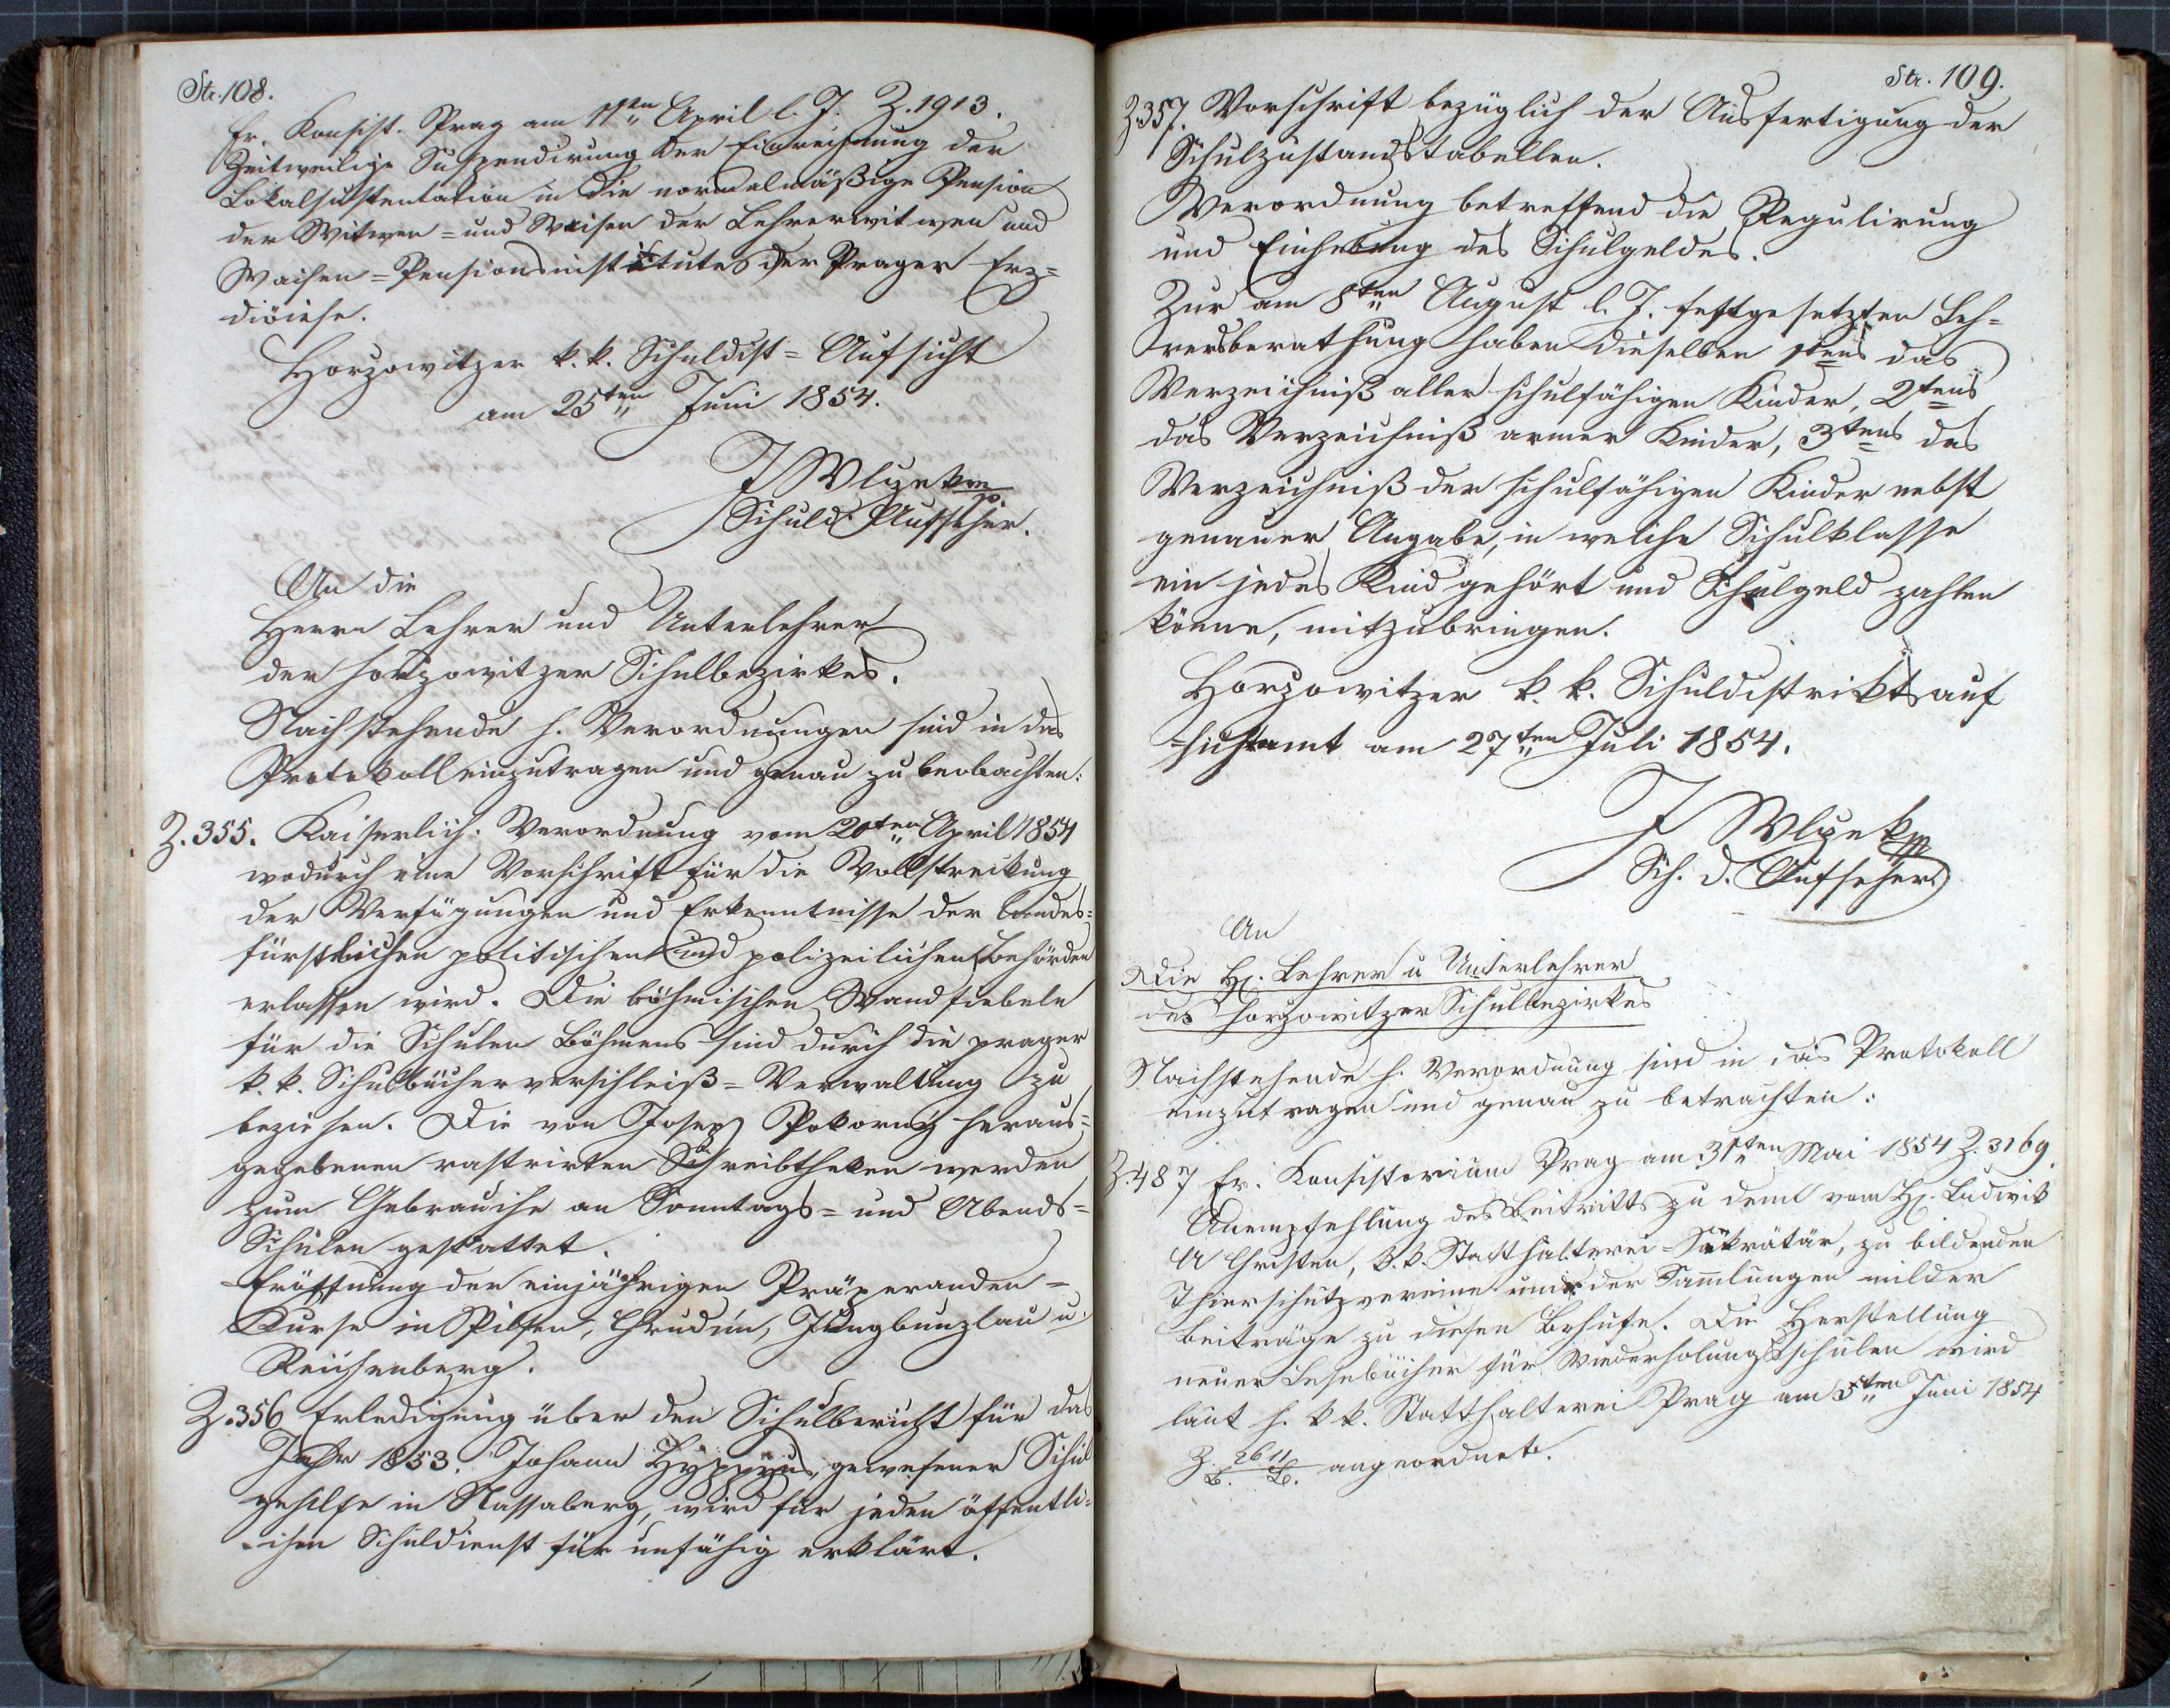 Str. 108.
Er. Konsist. Prag am 11ten April l. J. Z. 1913.
Zeitweilige Suspendirung der Einreihung der
Lokalsustentation in die normalmäßige Pension
der Witwen= und Waisen der Lehrerwitwen und
Waisen=Pensionsinstitutes der Prager Erz=
diöcese.
Horzowitzer k. k. Schuldist=Aufsicht
am 25ten Juni 1854.
J Wlczek
Schuld. Aufseher.
An die
Herrn Lehrer und Unterlehrer
der horzowitzer Schulbezirkes.
Nachstehende h. Verordnungen sind in das
Protokoll einzutragen und genau zu beobachten:
Z. 355. Kaiserlich. Verordnung vom 20ten April 1854
wodurch eine Vorschrift für die Vollstreckung
der Verfügungen und Erkenntnisse der landes=
fürstlichen politischen und polizeilichen Behörden
erlassen wird. Die böhmischen Wandfiebeln
für die Schulen Böhmens sind durch die prager
k. k. Schulbücherverschleiß=Verwaltung zu
beziehen. Die von Josef Pokorný heraus=
gegebenen rastrirten Schreibtheken werden
zum Gebrauche an Sonntags= und Abends=
Schulen gestattet.
Eröffnung der einjährigen Präperanden=
Kurse in Pilsen, Chrudim, Jungbunzlau u.
Reichenberg.
Z. 356 Erledigung über den Schulbericht für das
Jahr 1853. Johann gewesener Schul
gehilfe in Nassaberg, wird für jeden öffentli=
chen Schuldienst für unfähig erklärt.
Str. 109.
Z. 357. Vorschrift bezüglich der Ausfertigung der
Schulzustandstabellen.
Verordnung betreffend die Regulirung
und Einhebung des Schulgeldes.
Zur am 8ten August l. J. festgesetzten Leh=
rersberathung haben dieselben 1tens das
Verzeichniß aller schulfähigen Kinder, 2tens
das Verzeichniß armer Kinder, 3tens das
Verzeichniß der schulfähigen Kinder nebst
genauer Angabe, in welche Schulklasse
ein jedes Kind gehört und Schulgeld zahlen
könne, mitzubringen.
Horzowitzer k. k. Schuldistriktsauf
=sichtamt am 27ten Juli 1854.
J Wlczek
Sch. d. Aufseher
An
Die H. Lehrer u Unterlehrer
des horzowitzer Schulbezirkes
Nachstehende h. Verordnung sind in das Protokoll
einzutragen und genau zu betrachten:
Z. 487 Er. Konsistorium Prag am 31ten Mai 1854 Z. 3169.
Anempfehlung des Beitritts zu deml vom H. Ludwik
A Christen, k. k. Statthalterei=Säkrätär, zu bildenden
Thierschutzvereine und der Sammlungen milder
Beiträge zu diesen Behufe. Die Herstellung
neuer Lesebücher für Wiederholungsschulen wird
laut h. k k. Statthalterei Prag am 5ten Juni 1854
Z. 2611 angeordnet.